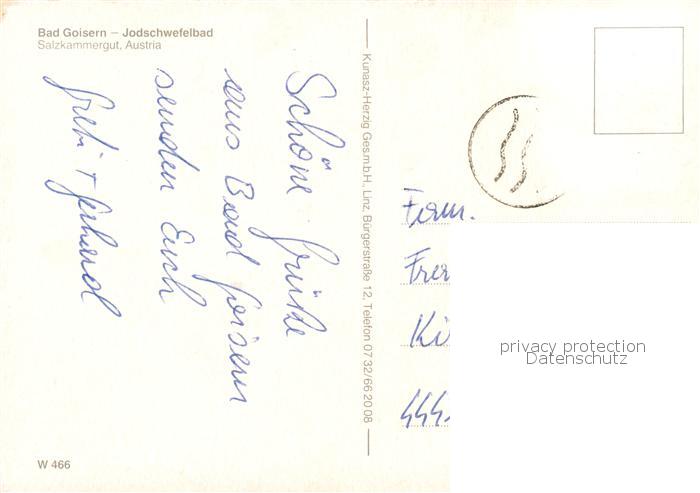 Bad Goisern – Jodschwefelbad
Salzkammergut, Austria
Schöne Grüße
aus Bad Goisern
senden Euch
Greti + Gerhard
Kunasz-Herzig Ges.m.b.H., Linz, Bürgerstraße 12, Telefon 07 32/66 20 08
Fam.
Frei
Ki
444.
privacy protection
Datenschutz
W 466